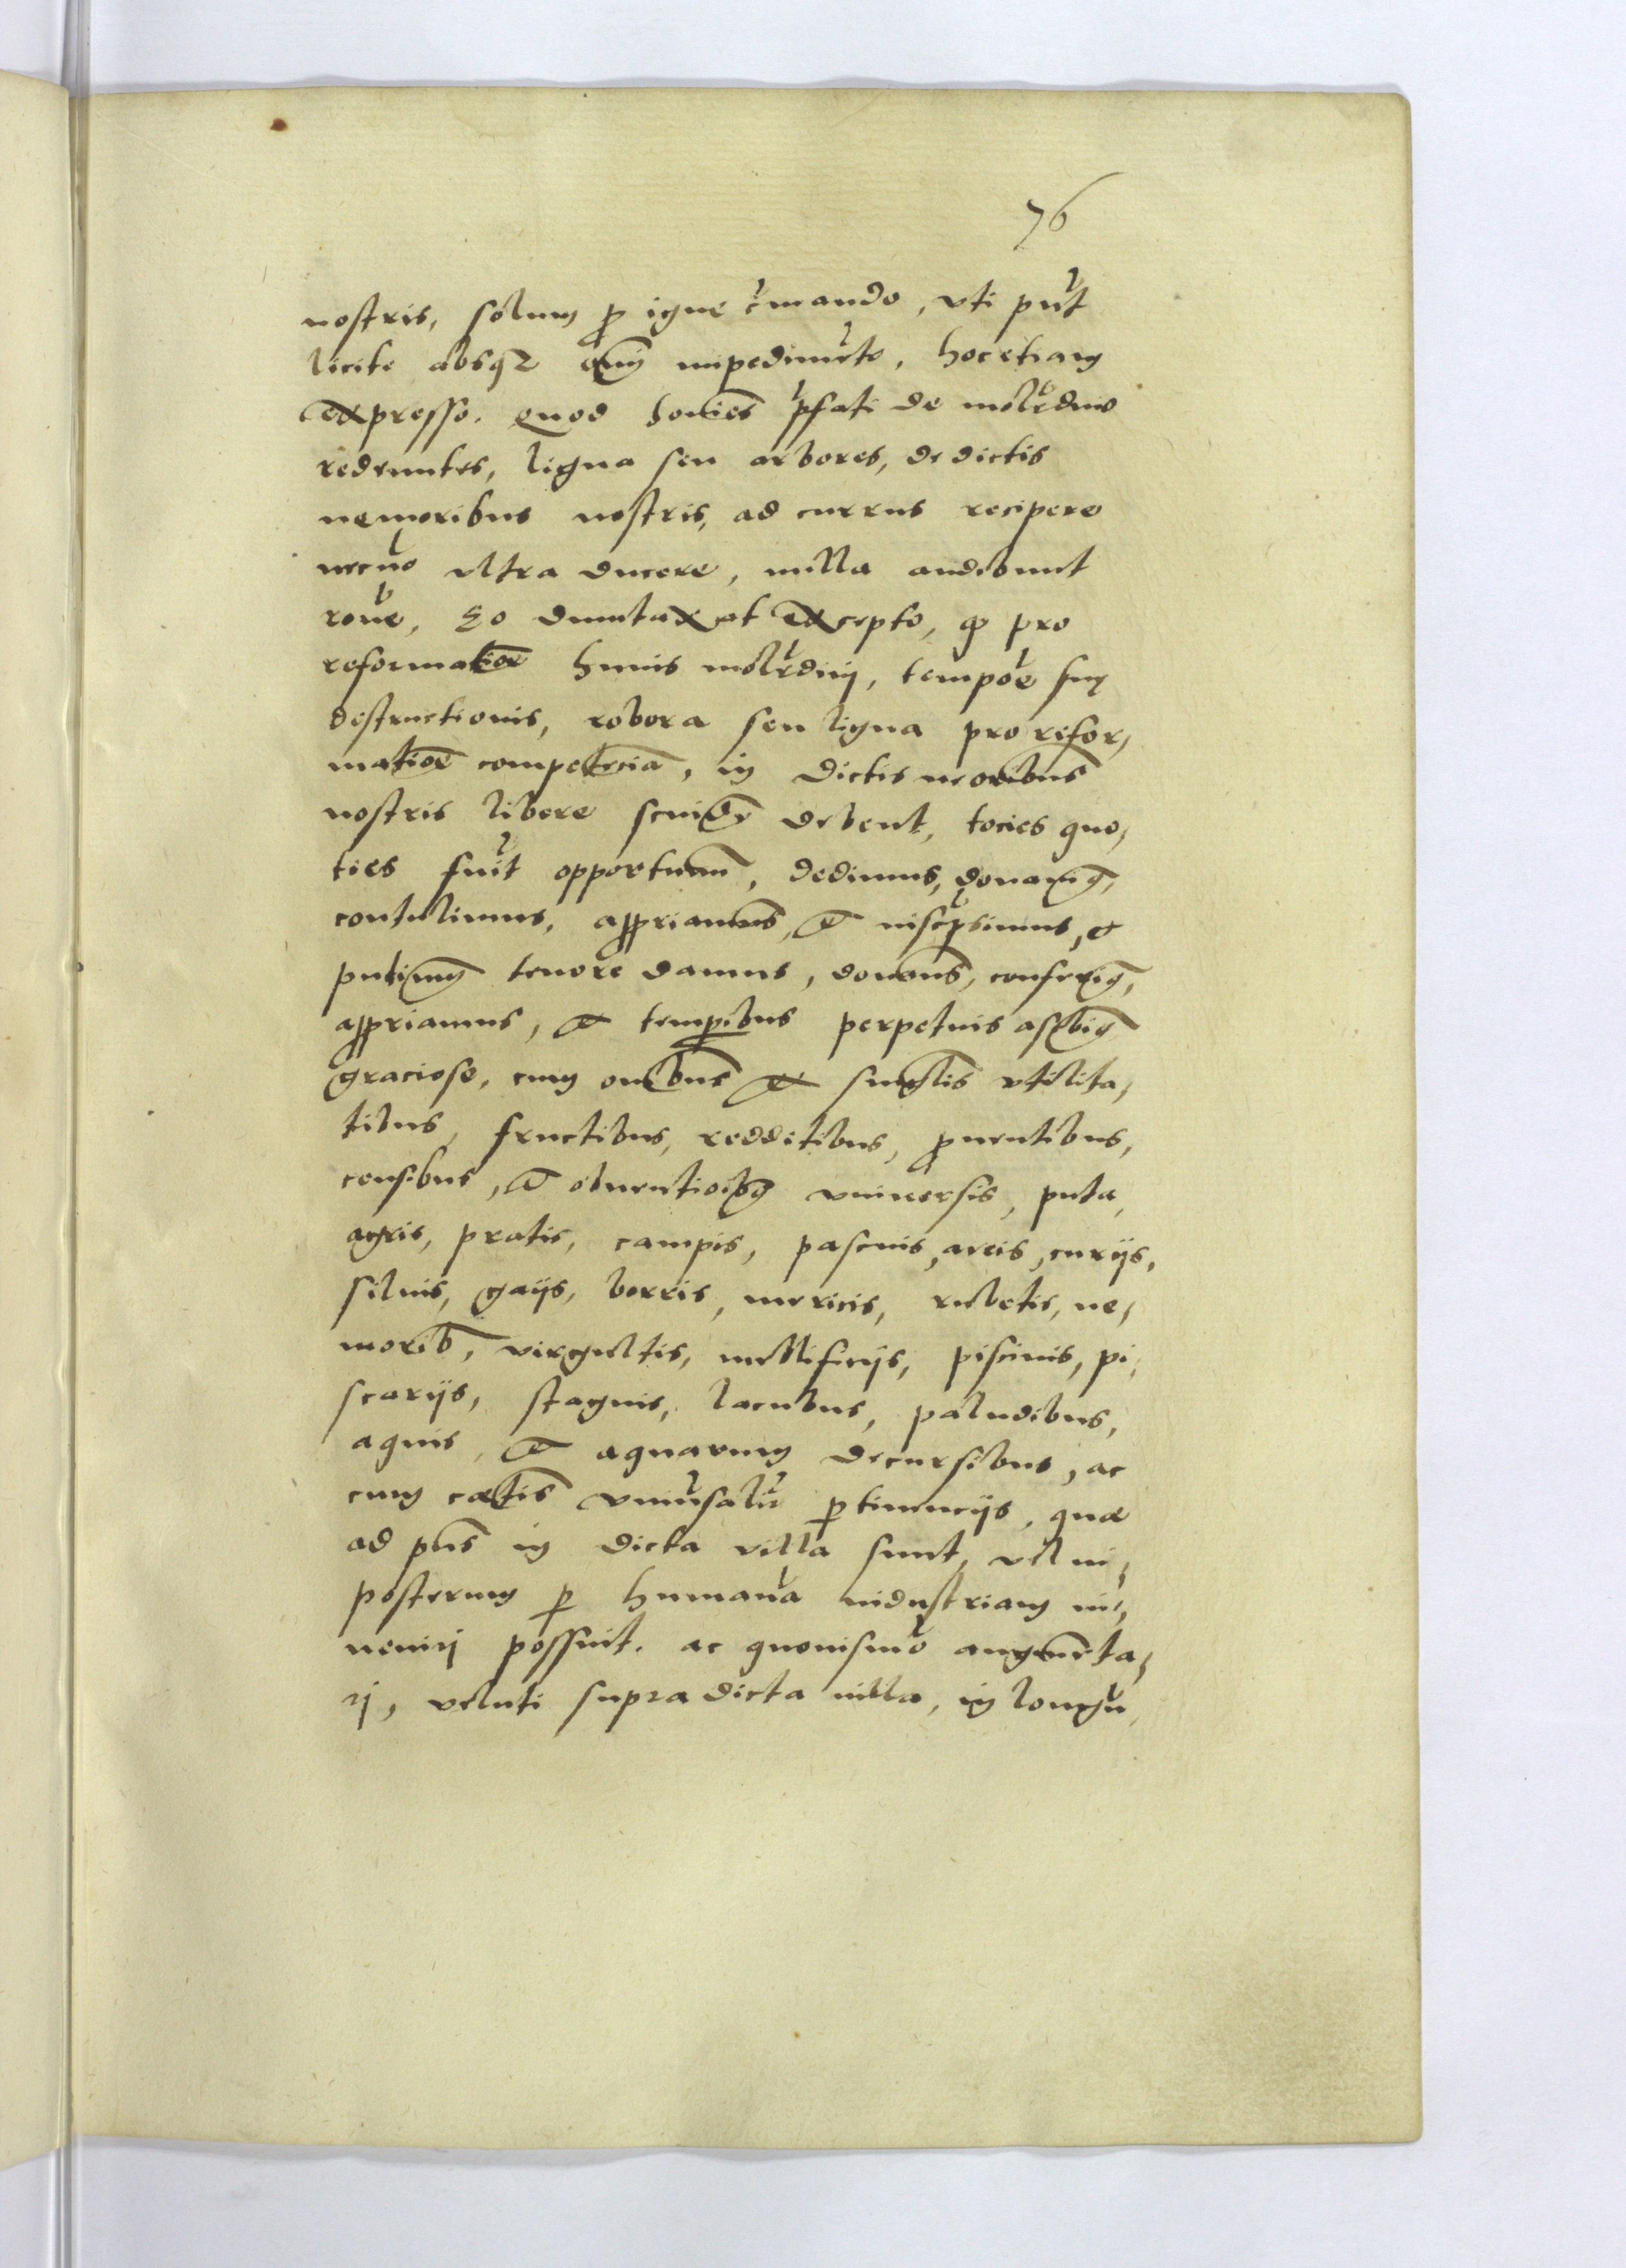 76
nostris, solum ꝑ igne cͬmando, vti put
licite absqꝫ omnj impedimēto, hoc etiam
expresso. Quod homies pͬfati de molēdino
redeuntes, ligna seu arbores, de dictis
nemoribus nostris, ad currus recipere
necno vltra ducere, nulla audebunt
rone, Eo duntaxat excepto, qp pro
reformatioē huius molēdinj, tempoͬe suę
destructionis, robora seu ligna pro refor,
matioē competēciā, in dictis neoribus
nostris libere scindēr debent, tocies quo,
ties fuit opportunū, dedimus, donauimꝰ,
contulimus, aꝓpriauimus, & inscrͥpsimus, et
putibus tenore damus, donamus, conferimꝰ,
aꝓpriamus, & temporibus perpetuis ascͥbimꝰ
graciose, cum omībus & singͥlis vtilita,
tibus, fructibus, redditibus, ꝓuentibus,
censibus, & obuentioībꝰ vniuersis, puta,
agris, pratis, campis, pascuis, areis, curijs,
siluis, gaijs, borris, mericis, rubetis, ne,
morib, virgultis, mellificijs, piscinis, pi,
scarijs, stagnis, lacubus, paludibus,
aquis, & aquarum decursibus, ac
cum cætis vniuͬsalͬr ꝑtinencijs, quæ
ad pns in dicta villa sunt, vel in,
posterum ꝑ humana industriam in,
uenirj possint. ac quouismo augmēta,
rj, veluti supra dicta villa, in longū,